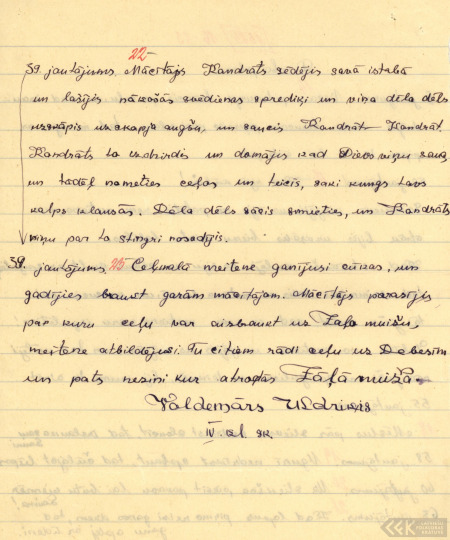 22
39. jautājums. Mācītājs Kandrāts sēdējis savā istabā
un lasījis nākošās svēdienas sprediķi un viņa dēla dēls
uzkāpis uz skapja augšu, un saucis Kandrāt Kandrāt.
Kandrāts to uzdzirdis un domājis kad Dievs viņu sauc,
un tādēļ nometies ceļos un teicis, saki kungs tavs
kalps klausās. Dēla dēls sācis smieties, un Kandrāts
viņu par to stingri nosodījis.
39. jautājums. 25 Ceļmalā meitene ganījusi cūkas, un
gadījies braukt garām mācītājam. Mācītājs parasījis
par kuru ceļu var aizbraukt uz Zaļo muižu,
meitene atbildējusi: Tu citiem rādi ceļu uz Debesīm
un pats nezini kur atrodas Zāļā muiža.
Voldemārs
IV. kl. sk.